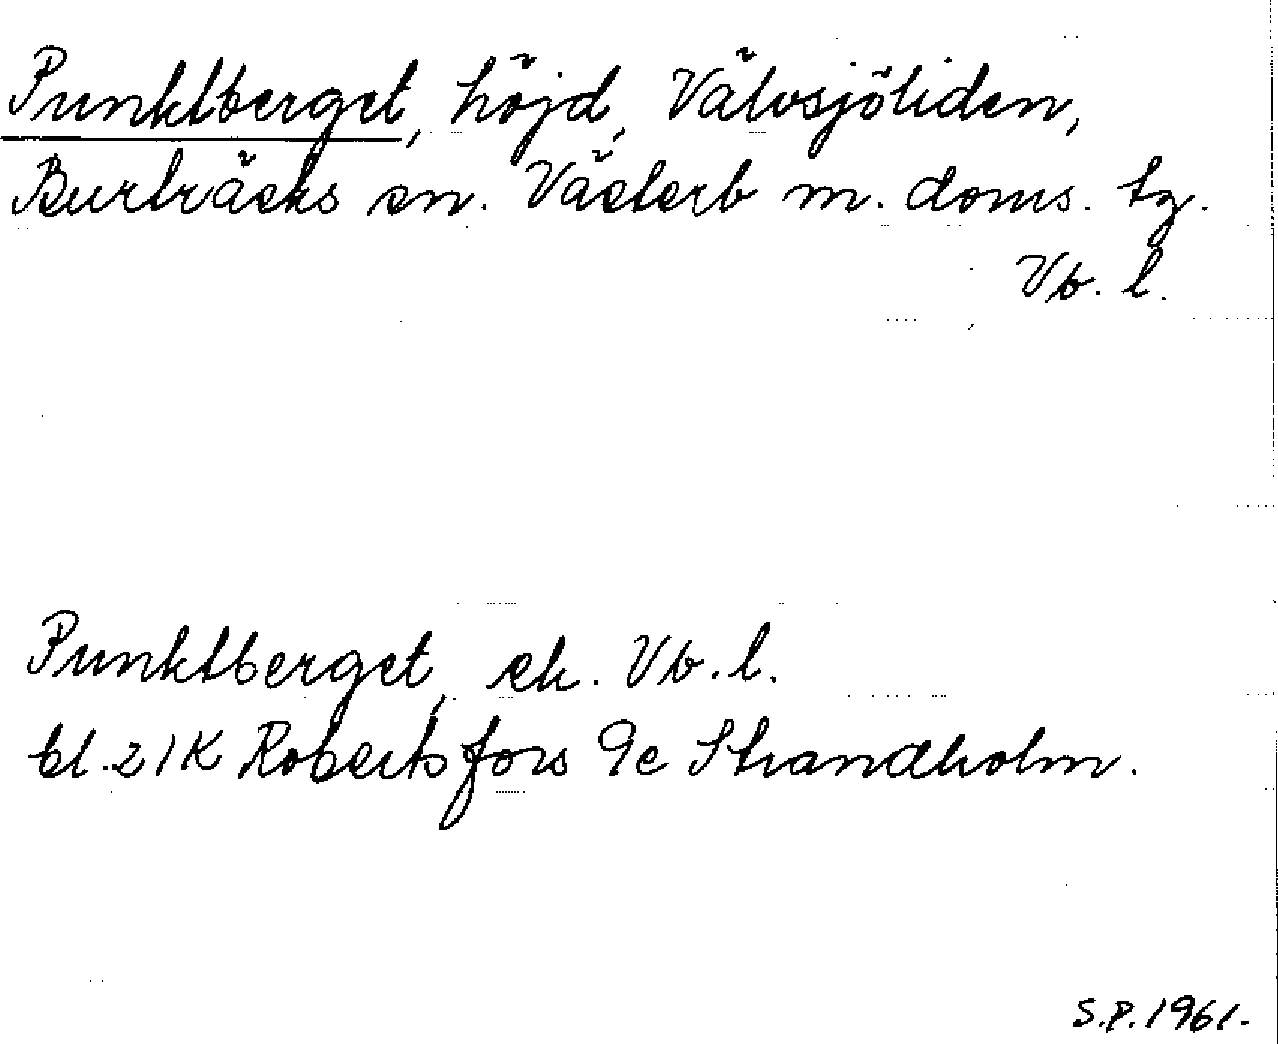 Punktberget, höjd, Välvsjöliden,
Burträsks sn. Västerb m. doms. tg.
Vb. l.
Punktberget, ek. Vb. l.
bl. 21K Robertsfors 9c Strandholm.
S.P. 1961.